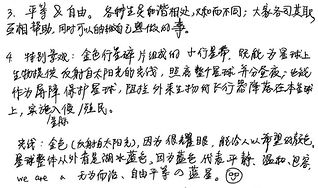 3. 平等 & 自由。各种生灵和谐相处，又和而不同；大家各司其职
互相帮助，同时可以纳福自己想做的事。
4 特别景观：金色行星碎片组成的小行星带，既能为星球上
生物提供反射自太阳光的光线，照亮整个星球并分昼夜，也能
作为屏障保护星球，阻挡外来生物的飞行器降落在本星球
上，实施入侵/殖民。
/坠落
光线：金色(反射自太阳光)，因为很耀眼，能给人以希望的颜色。
星球整体从外看是湖水蓝色，因为蓝色代表平静、温和、包容，
we are a 无为而治、自由平等の蓝星。